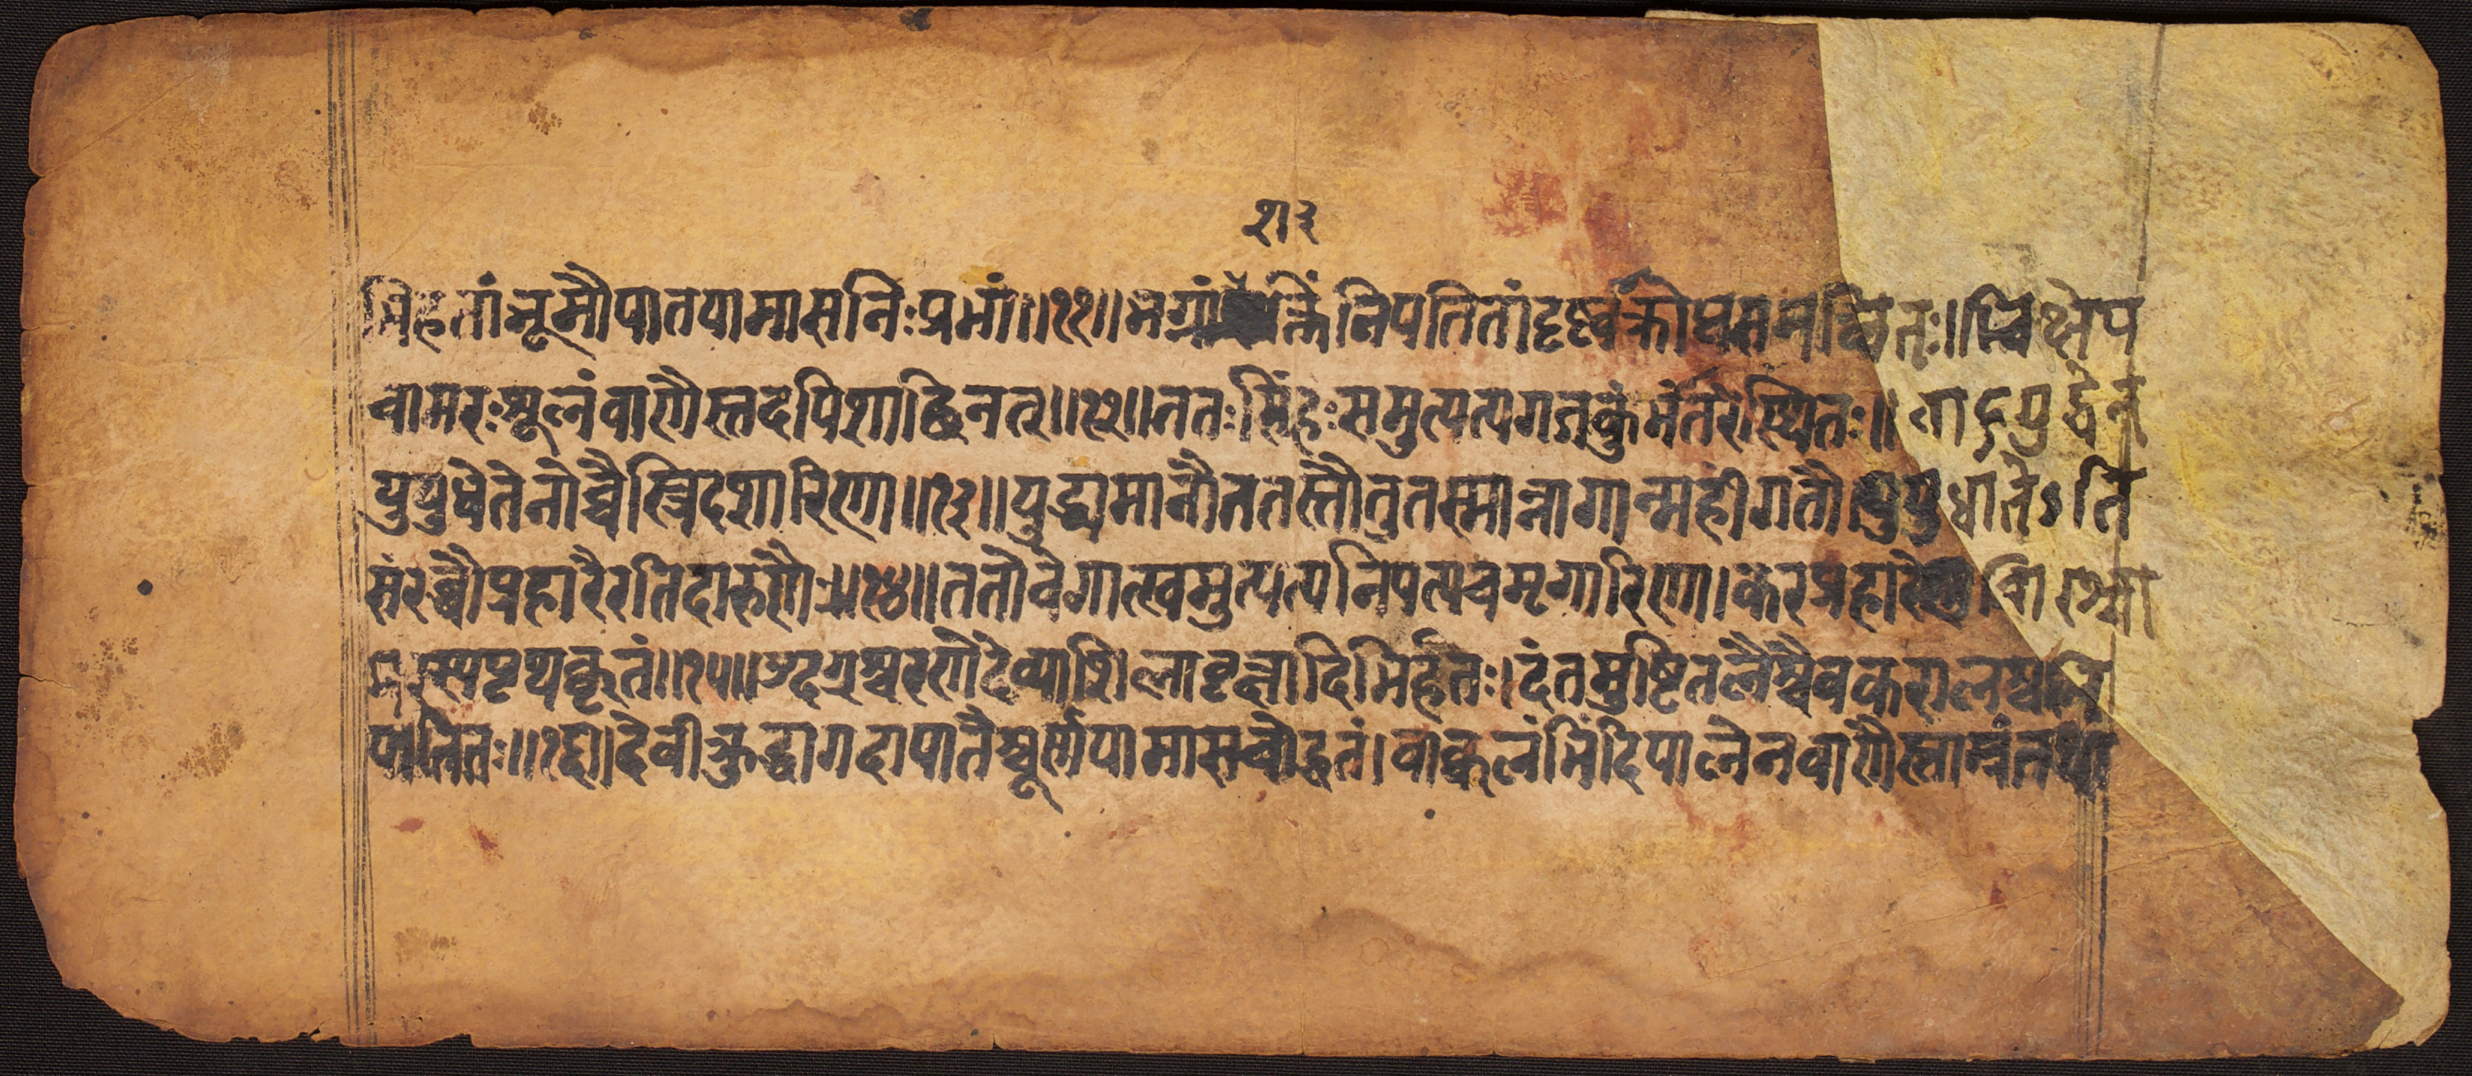 श ३
भिहतांभूमौपातयामासनिःप्रभां॥११॥भग्नांशक्तिंनिपतितांदृष्ट्वाक्रोधसमन्वितः।चिक्षेप
चामरःशूलंबाणैस्तदपिशाछिनत्॥१२॥ततःसिंहःसमुत्पत्यगजकुंभंतरेस्थितः॥बाहुयुद्धेन
युयुधेतेनोच्चैस्त्रिदशारिणा॥१३॥युद्ध्यमानौततस्तौतुतस्मान्नागान्महींगतौ।युयुधातेऽति
संरब्धौप्रहारैरतिदारुणैः॥१४॥ततोवेगात्खमुत्पत्यनिपत्यचमृगारिणा।करप्रहारेण शिरश्चा
मरस्यपृथक्कृतं॥१५॥उदग्रश्चरणेदेव्याशिलावृक्षादिभिर्हतः।दंतमुष्टितलैश्चैवकरालश्चनि
पातितः॥१६॥देवीक्रुद्धागदापातैश्चूर्णयामासचोद्धतं।वाष्कलंभिंदिपालेनबाणैस्ताम्रंतथा